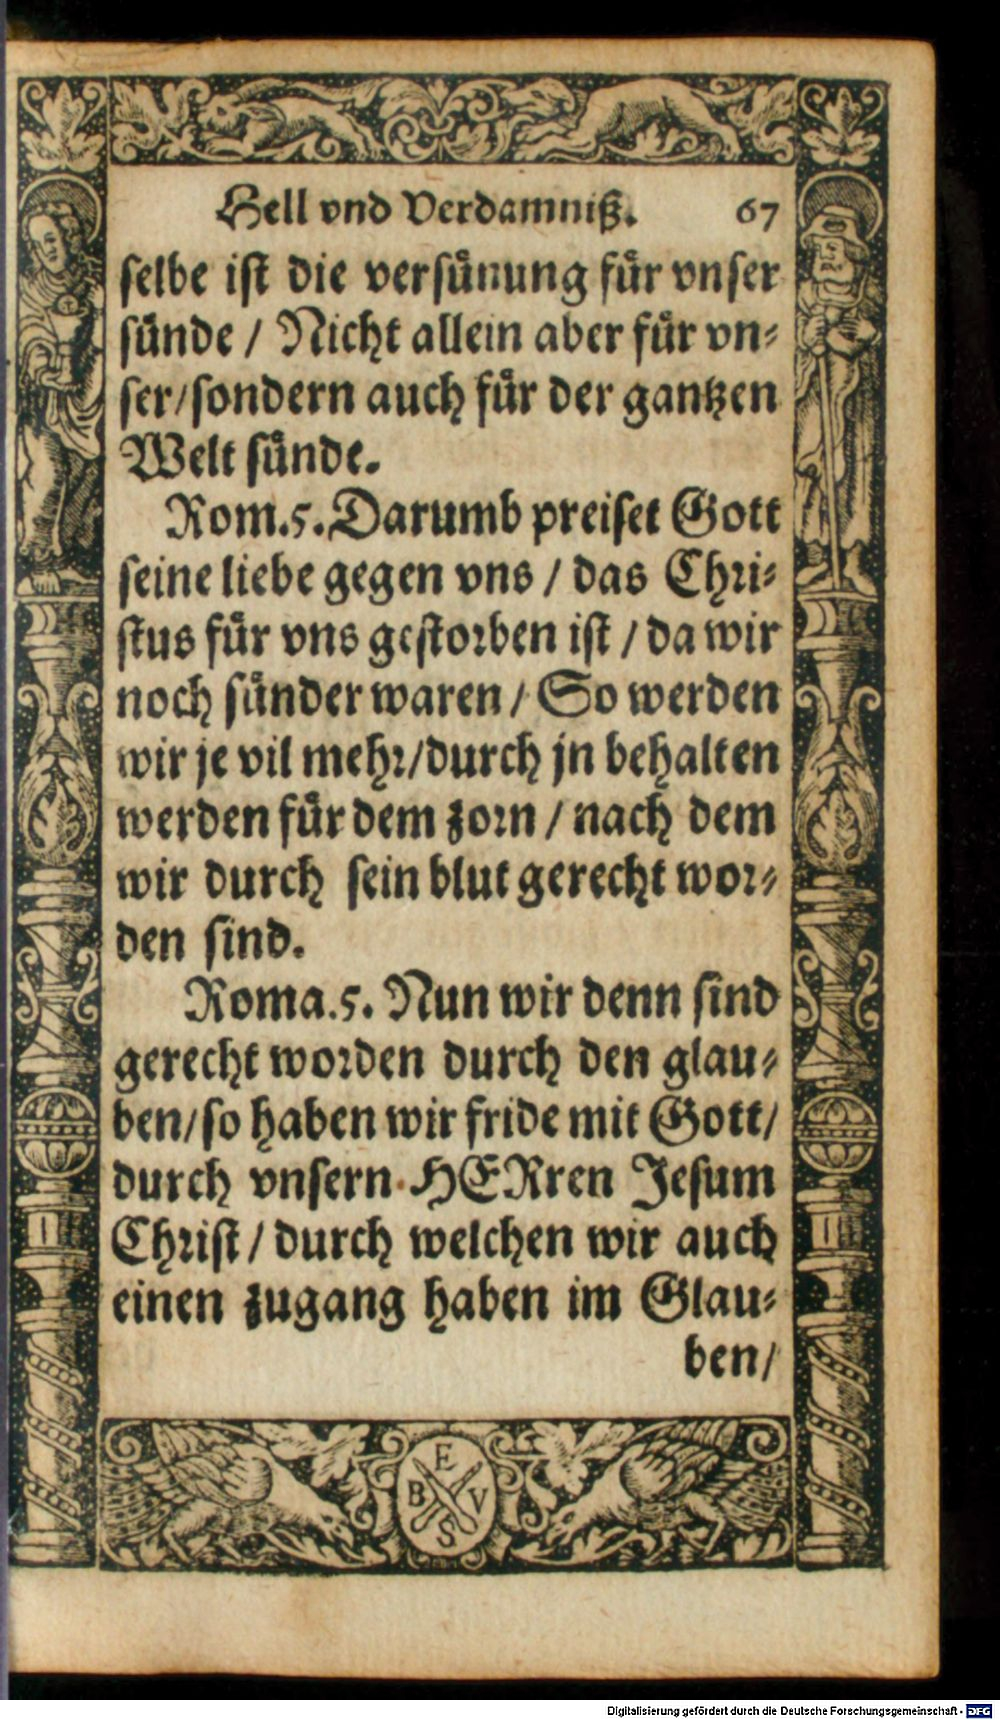 Hell vnd Verdamniß. 67
selbe ist die versuͤnung fuͤr vnser
suͤnde / Nicht allein aber fuͤr vn⸗
ser/sondern auch fuͤr der gantzen
Welt suͤnde.
Rom.5. Darumb preiset Gott
seine liebe gegen vns / das Chri⸗
stus fuͤr vns gestorben ist / da wir
noch suͤnder waren / So werden
wir je vil mehr/durch jn behalten
werden fuͤr dem zorn / nach dem
wir durch sein blut gerecht wor⸗
den sind.
Roma.5. Nun wir denn sind
gerecht worden durch den glau⸗
ben/so haben wir fride mit Gott/
durch vnsern HERren Jesum
Christ / durch welchen wir auch
einen zugang haben im Glau⸗
ben/
E
B V
S
Digitalisierung gefördert durch die Deutsche Forschungsgemeinschaft - DFG